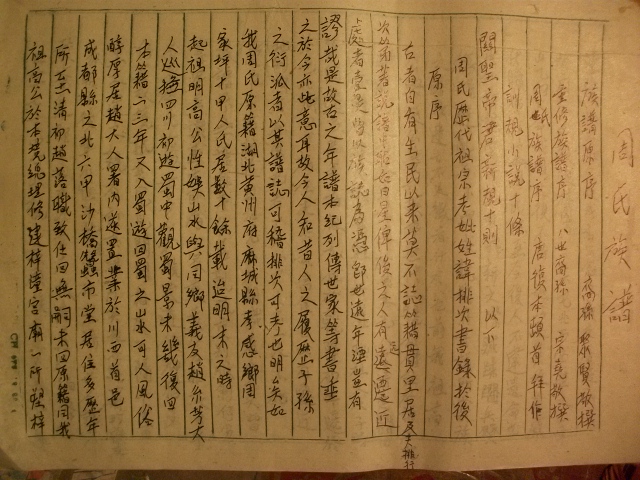 周氏族譜
族譜原序 裔孫聚賢敬撰
重修族譜序 八世裔孫 宗堯敬撰
周氏族譜序 居積本頓首拜作
訓規小說十條
關聖帝君新親十則 以下
周氏歷代祖宗考妣姓諱排次書錄於後
原序
古者自有生民以來莫不誌籍貫里居及夫排行
次第著說譜
處者壹 以 誌為憑 世遠年湮豈有
謬哉是故古之年譜本紀列傳世家等書垂
之於今亦此意耳故今人知昔人之履歷子孫
之衍派者以其譜誌可稽排次可考也明矣如
我周氏原籍湖北黃州府麻城縣孝感鄉周
家坪十甲人氏居數十餘載迨明末之時
起祖明高公性娛山水與同鄉義友趙
人巡撫四川邵遊蜀中觀蜀景未幾復回
本籍二三年又入蜀遊回蜀之山水可人風俗
醇厚居趙大人署內遂置業於川西首邑
成都縣之北六甲沙橋 市堂居住多歷年
所至清初趙落職致仕回無嗣未回原籍同我
祖高公於本境總理修建梓潼宮廟一所塑梓